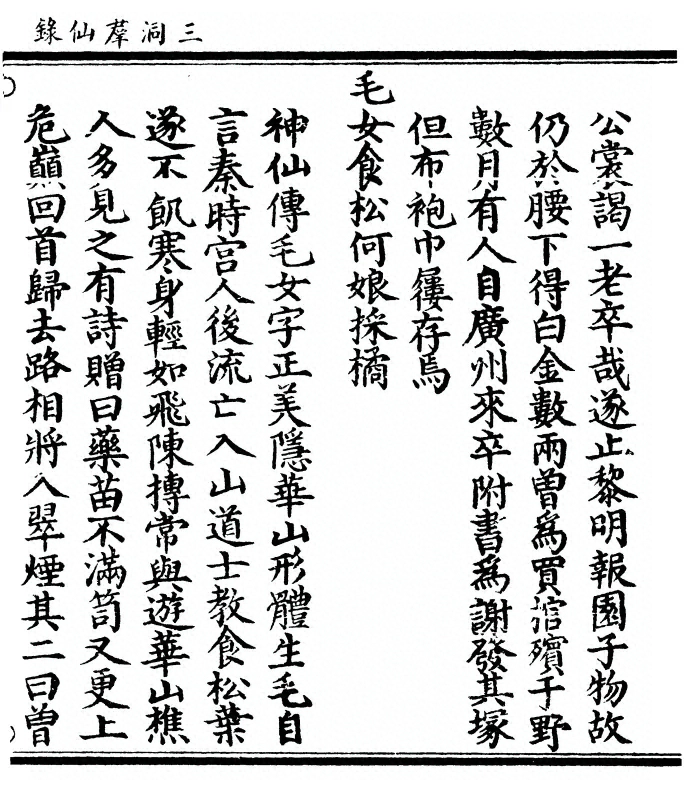 三洞羣仙錄
公裳謁一老卒哉遂止黎明報園子物故
仍於腰下得白金數兩曾為買棺殯于野
數月有人自廣州來卒附書為謝發其塚
但布袍巾屨存焉
毛女食松何娘採橘
神仙傳毛女字正美隱華山形體生毛自
言秦時宮人後流亡入山道士教食松葉
遂不飢寒身輕如飛陳摶常與遊華山樵
人多見之有詩贈曰藥苗不滿笥又更上
危巔回首歸去路相將入翠煙其二曰曾